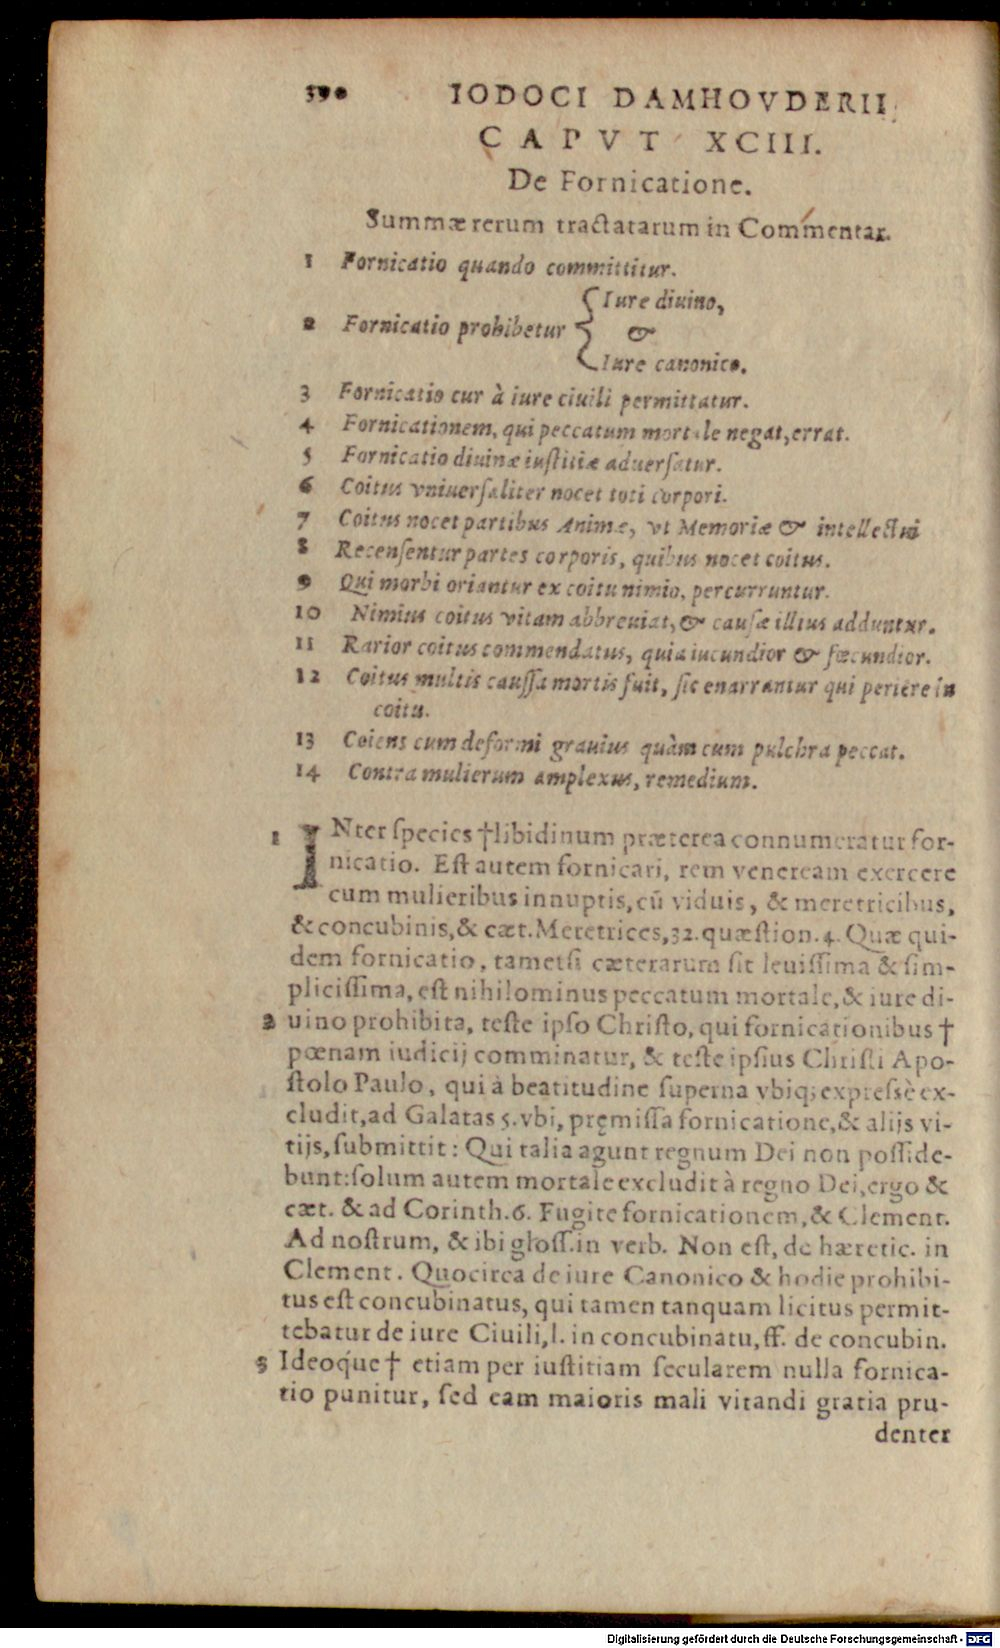 390 IODOCI DAMHOVDERII
CAPVT XCIII.
De Fornicatione.
Summæ rerum tractatarum in Commentar.
1 Fornicatio quando committitur.
2 Fornicatio prohibetur { Iure diuino,
&
Iure canonico.
3 Fornicatio cur à iure ciuili permittatur.
4 Fornicationem, qui peccatum mortale negat, errat.
5 Fornicatio diuinæ iuſtitiæ aduerſatur.
6 Coitus vniuerſaliter nocet toti corpori.
7 Coitus nocet partibus Animæ, vt Memoriæ & intellectui
8 Recenſentur partes corporis, quibus nocet coitus.
9 Qui morbi oriantur ex coitu nimio, percurruntur.
10 Nimius coitus vitam abbreuiat, & cauſæ illius adduntur.
11 Rarior coitus commendatus, quia iucundior & fœcundior.
12 Coitus multis cauſſa mortis fuit, ſic enarrantur qui periere in
coitu.
13 Coiens cum deformi grauius quàm cum pulchra peccat.
14 Contra mulierum amplexus, remedium.
1 INter ſpecies †libidinum præterea connumeratur for-
nicatio. Eſt autem fornicari, rem veneream exercere
cum mulieribus innuptis, cū viduis, & meretricibus,
& concubinis, & cæt. Meretrices, 32. quæſtion. 4. Quæ qui-
dem fornicatio, tametſi cæterarum ſit leuiſſima & ſim-
pliciſſima, eſt nihilominus peccatum mortale, & iure di-
2 uino prohibita, teſte ipſo Chriſto, qui fornicationibus †
pœnam iudicij comminatur, & teſte ipſius Chriſti Apo-
ſtolo Paulo, qui à beatitudine ſuperna vbiq; expreſsè ex-
cludit, ad Galatas 5. vbi, pręmiſſa fornicatione, & alijs vi-
tijs, ſubmittit: Qui talia agunt regnum Dei non poſſide-
bunt: ſolum autem mortale excludit à regno Dei, ergo &
cæt. & ad Corinth. 6. Fugite fornicationem, & Clement.
Ad noſtrum, & ibi gloſſ. in verb. Non eſt, de hæretic. in
Clement. Quocirca de iure Canonico & hodie prohibi-
tus eſt concubinatus, qui tamen tanquam licitus permit-
tebatur de iure Ciuili, l. in concubinatu, ff. de concubin.
3 Ideoq́ue † etiam per iuſtitiam ſecularem nulla fornica-
tio punitur, ſed eam maioris mali vitandi gratia pru-
denter
Digitalisierung gefördert durch die Deutsche Forschungsgemeinschaft - DFG